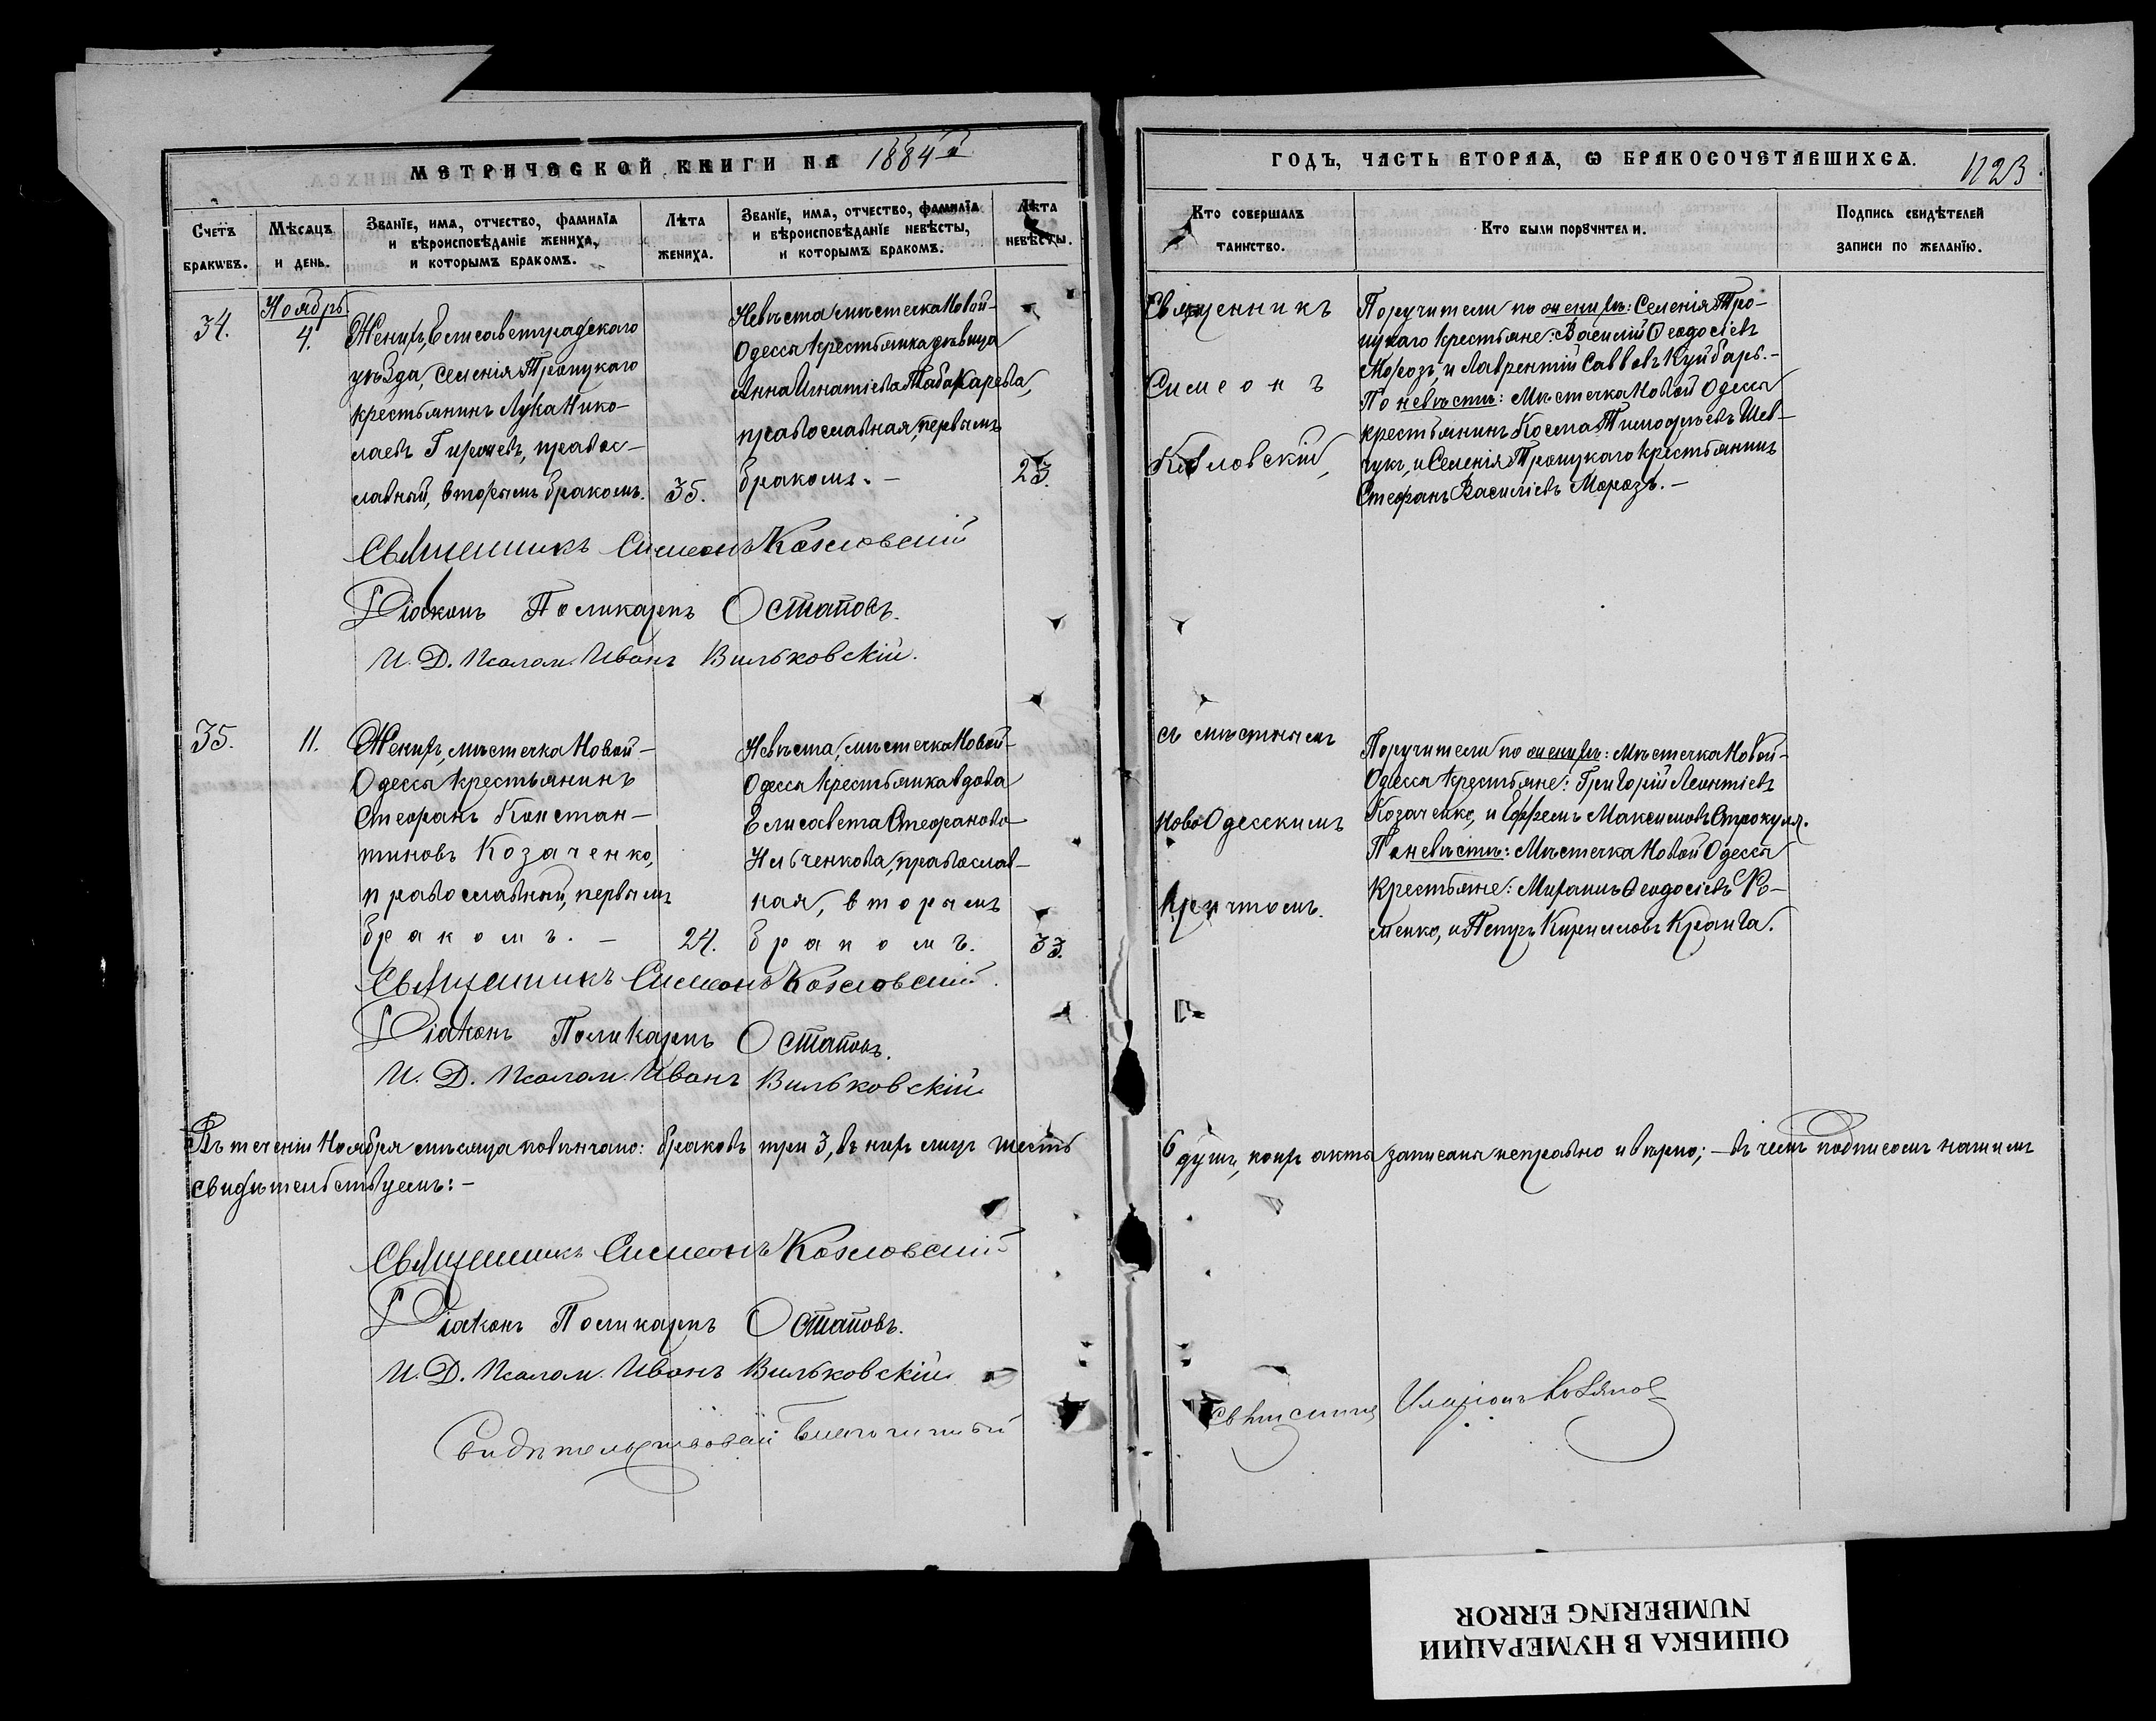 МЕТРИЧЕСКОЙ КНИГИ НА 1884 й
ГОДЪ, ЧАСТЬ ВТОРАЯ, Ѡ БРАКОСОЧЕТАВШИХСЯ.
1123
Счетъ
бракѡвъ.
Мѣсяцъ
и день.
Званїе, имя, отчество, фамилїя
и вѣроисповѣданїе жениха,
и которымъ бракомъ.
Лѣта
жениха.
Званїе, имя, отчество, фамилїя
и вѣроисповѣданїе невѣсты,
и которымъ бракомъ.
Лѣта
невѣсты.
Кто совершалъ
таинство.
Кто были порꙋчители.
Подпись свидѣтелей
записи по желанїю.
34.
Ноябрь
4.
Женихъ, Елисаветградскаго
уѣзда, селенія Троицкаго
крестьянинъ Лука Нико-
лаевъ православ-
лавный, вторымъ бракомъ.
35.
Невѣста мѣстечка Новой-
Одессы крестьянка дѣвица
Анна Игнатіева Табакарева,
православная, первымъ
бракомъ. -
23.
Священникъ
Симеонъ
Козловскій,
Поручители по женихѣ: Селенія Тро-
ицкаго крестьяне: Василій Ѳеодосіевъ
Морозъ, и Лаврентій Саввовъ Куйбарь. -
По невѣстѣ: Мѣстечка Новой Одессы
крестьянинъ Косма Тимофѣевъ Шев-
чукъ, и Селенія Троицкаго крестьянинъ
Стефанъ Василіевъ Морозъ. -
Священникъ Симеонъ Козловскій
Діаконъ Поликарпъ Остаповъ.
И. Д. Псалом. Иванъ Вильковскій.
35.
11.
Женихъ, мѣстечка Новой-
Одессы крестьянинъ
Стефанъ Констан-
тиновъ Козаченко,
православный, первымъ
бракомъ. -
24.
Невѣста, мѣстечка Новой-
Одессы крестьянка вдова
Елисавета Стефанова
Ильченкова, православ-
ная, вторымъ
бракомъ.
33.
съ мѣстнымъ
Ново Одесскимъ
причтомъ.
Поручители по женихѣ: Мѣстечка Новой-
Одессы крестьяне: Григорій Леонтіевъ
Козаченко, и Ефремъ Максимовъ
По невѣстѣ: Мѣстечка Новой Одессы
крестьяне: Ѳеодосіевъ
и Петръ Кирилловъ
Священникъ Симеонъ Козловскій.
Діаконъ Поликарпъ Остаповъ.
И. Д. Псалом. Иванъ Вильковскій
Въ теченіи Ноября мѣсяца повѣнчано: браковъ три 3, въ нихъ лицъ шесть 6 душъ, коихъ акты записаны исправно и вѣрно; - въ чемъ подписомъ нашимъ
свидѣтельствуемъ: -
Священникъ Симеонъ Козловскій
Діаконъ Поликарпъ Остаповъ.
И. Д. Псалом. Иванъ Вильковскій
Свидѣтельствовалъ Благочинный Священникъ Иларіонъ
ОШИБКА В НУМЕРАЦИИ
NUMBERING ERROR